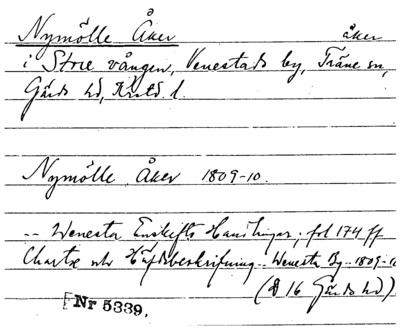 Nymölle Åker åker
i Store vången, Venestads by, Träne sn,
Gärds hd, Krstds l.
Nymölle Åker 1809-10.
-- Wenesta Enskifts Handlingar, fol 174 ff
Charta och Häfdbeskrifning.. Wenesta By.. 1809-10
(D 16 Gärds hd)
[Nr 5339.